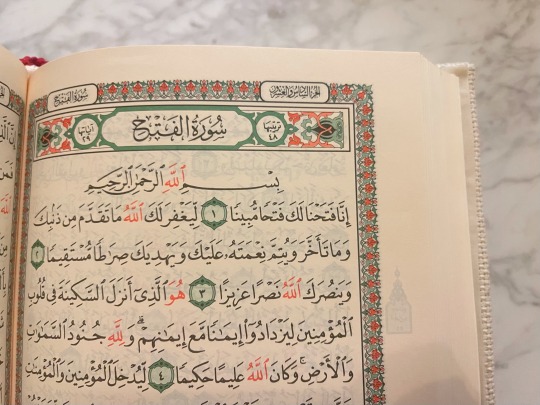 الجزء السادس والعشرون سورة الفتح
ترتيبها ٤٨ سُورَةُ الفَتْحِ آياتها ٢٩
بِسْمِ ٱللَّهِ ٱلرَّحْمَٰنِ ٱلرَّحِيمِ
إِنَّا فَتَحْنَا لَكَ فَتْحًا مُّبِينًا ١ لِّيَغْفِرَ لَكَ ٱللَّهُ مَا تَقَدَّمَ مِن ذَنۢبِكَ
وَمَا تَأَخَّرَ وَيُتِمَّ نِعْمَتَهُۥ عَلَيْكَ وَيَهْدِيَكَ صِرَٰطًا مُّسْتَقِيمًا ٢
وَيَنصُرَكَ ٱللَّهُ نَصْرًا عَزِيزًا ٣ هُوَ ٱلَّذِىٓ أَنزَلَ ٱلسَّكِينَةَ فِى قُلُوبِ
ٱلْمُؤْمِنِينَ لِيَزْدَادُوٓا۟ إِيمَٰنًا مَّعَ إِيمَٰنِهِمْ ۗ وَلِلَّهِ جُنُودُ ٱلسَّمَٰوَٰتِ
وَٱلْأَرْضِ ۚ وَكَانَ ٱللَّهُ عَلِيمًا حَكِيمًا ٤ لِّيُدْخِلَ ٱلْمُؤْمِنِينَ وَٱلْمُؤْمِنَٰتِ